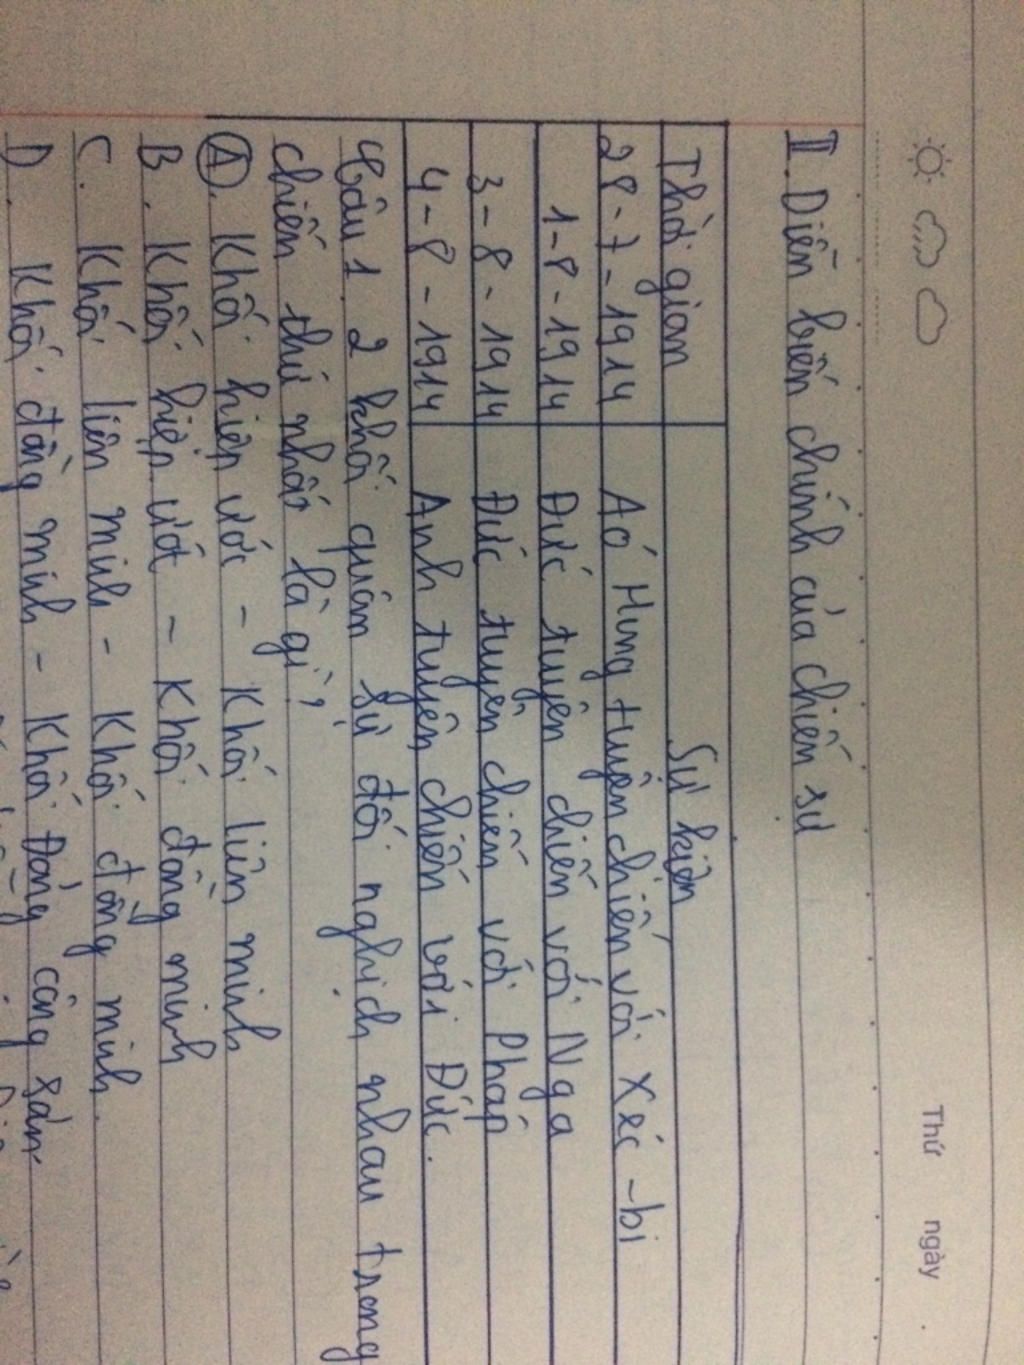 Thứ ngày
II. Diễn biến chính của chiến sự
Thời gian Sự kiện
28-7-1914 Aó Hung tuyên chiến với Xéc-bi
1-8-1914 Đức tuyên chiến với Nga
3-8-1914 Đức tuyên chiến với Pháp
4-8-1914 Anh tuyên chiến với Đức.
Câu 1. 2 khối quân sự đối nghịch nhau trong
chiến thứ nhất là gì?
A. Khối hiệp ước - Khối liên minh
B. Khối hiệp ướt - Khối đồng minh
C. Khối liên minh - Khối đồng minh.
D. Khối đồng minh - Khối Đảng cộng sản